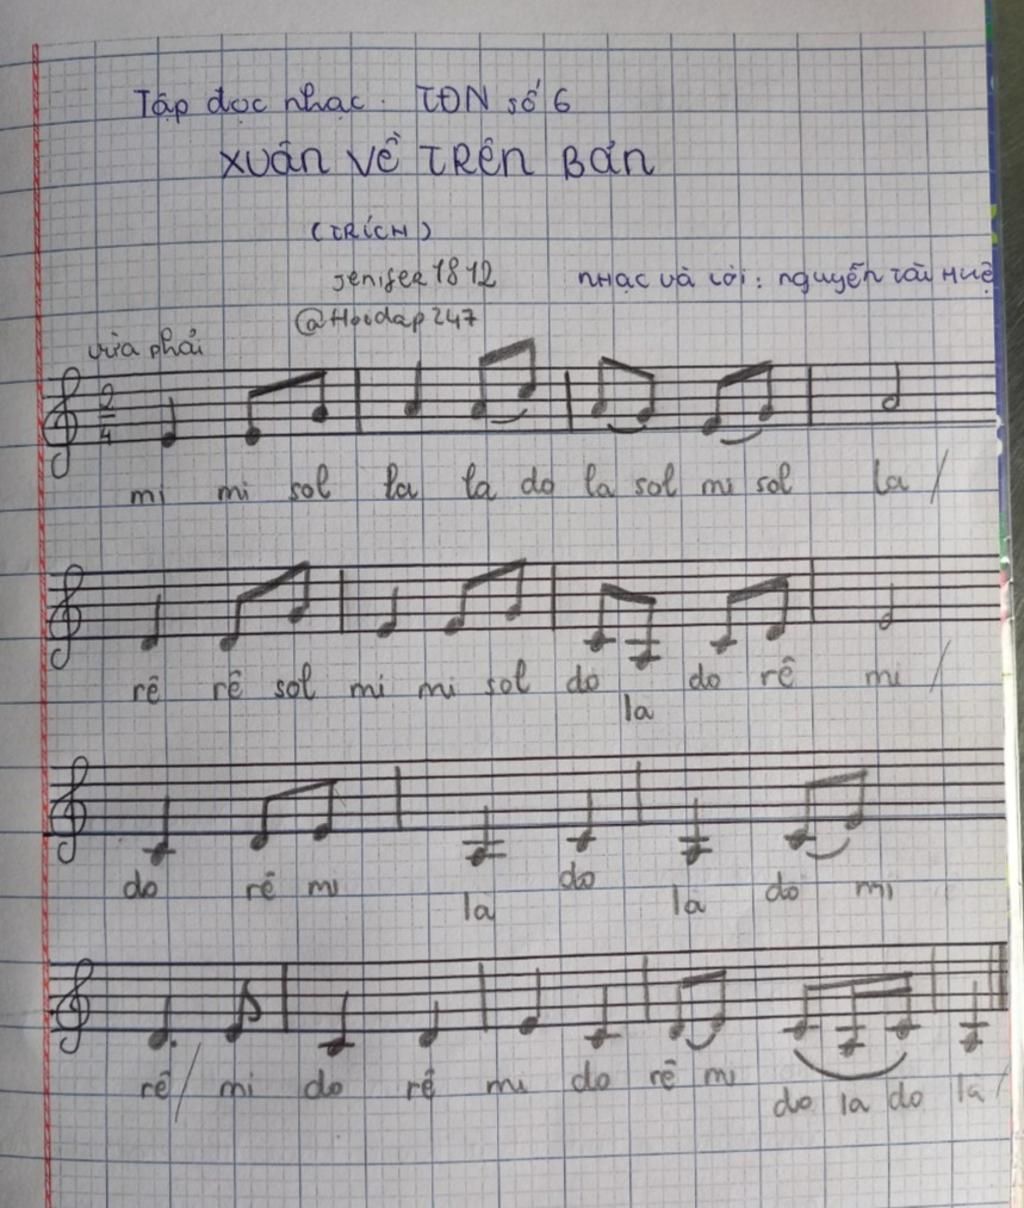 Tập đọc nhạc. TĐN số 6
XUÂN VỀ TRÊN BẢN
(TRÍCH)
jenifer1812 NHẠC và Lời: nguyễn Tài Huệ
@Hoidap247
vừa phải
2
4
mi mi sol la la do la sol mi sol la /
rê rê sol mi mi sol do la do rê mi /
do rê mi la do la do mi
rê / mi do rê mi do rê mi do la do la /